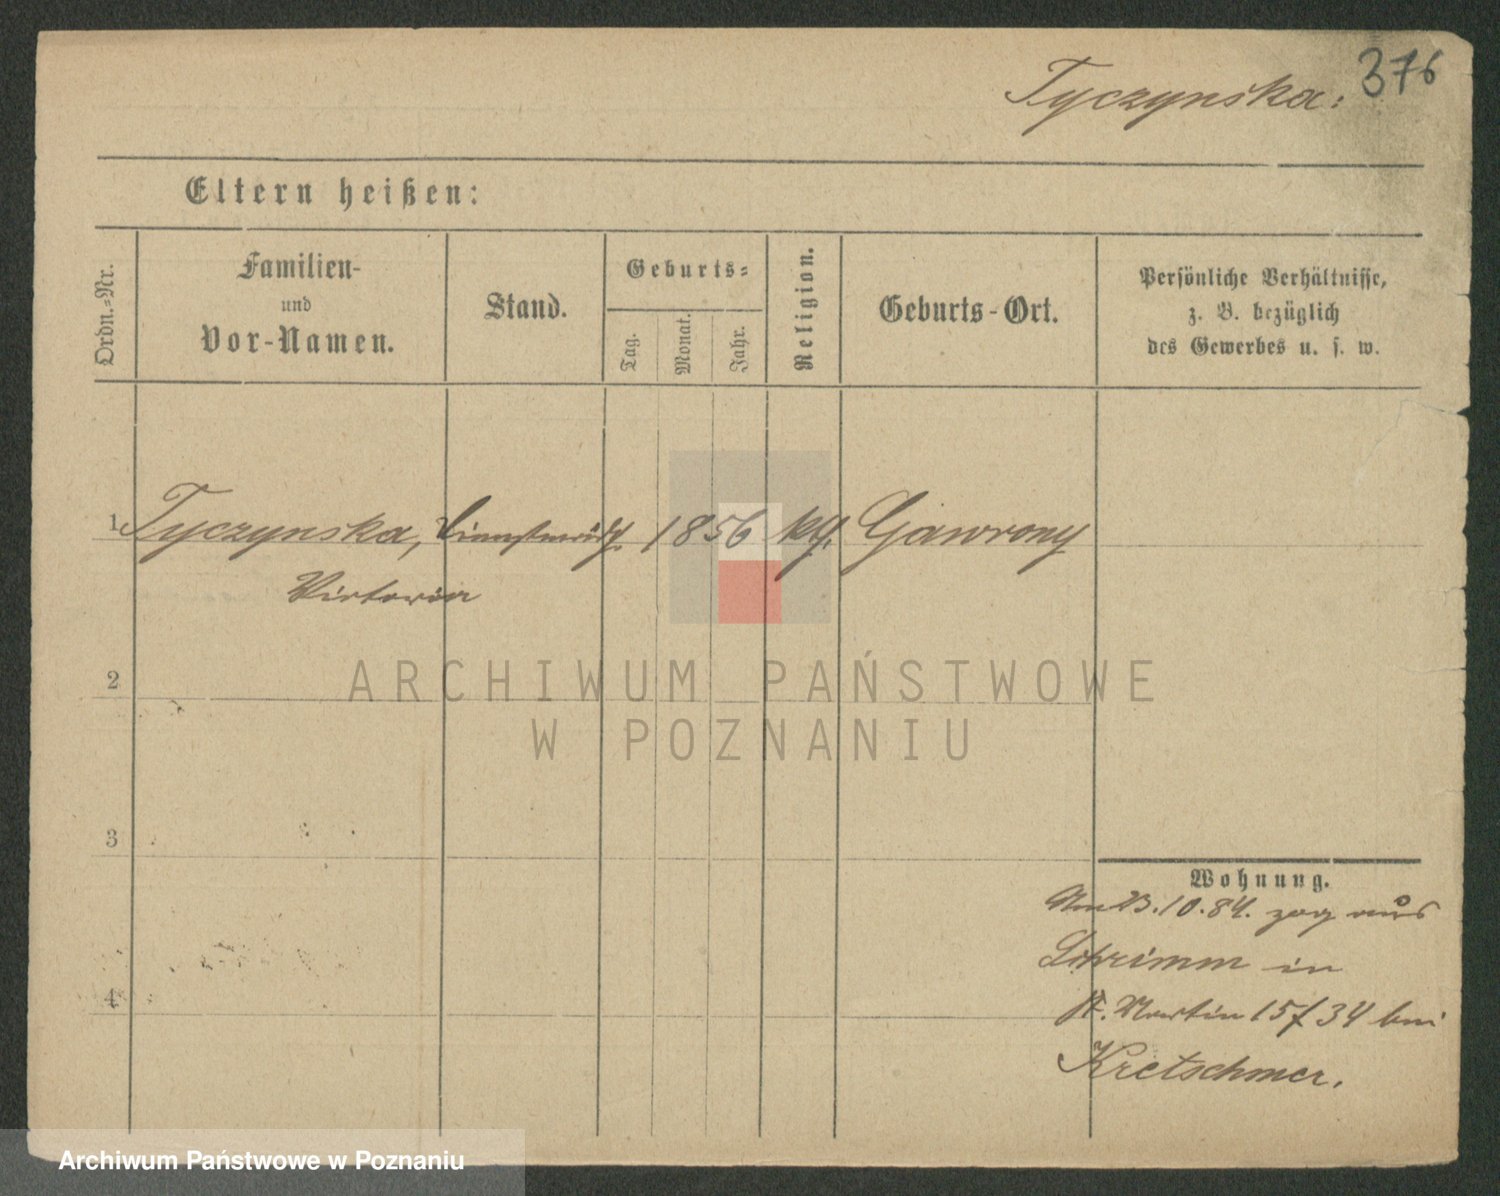 376
Tyczynska:
Eltern heißen:
Ordn.-Nr.
Familien-
und
Vor-Namen.
Stand.
Geburts-
Tag.
Monat.
Jahr.
Religion.
Geburts-Ort.
Persönliche Verhältnisse,
z. B. bezüglich
des Gewerbes u. s. w.
1 Tyczynska, 1856 Gawrony
Victoria
2
3
4
Wohnung.
Am 23.10.84. zog aus
Schrimm in
St. Martin 15/34 bei
Kretschmer.
ARCHIWUM PAŃSTWOWE
W POZNANIU
Archiwum Państwowe w Poznaniu